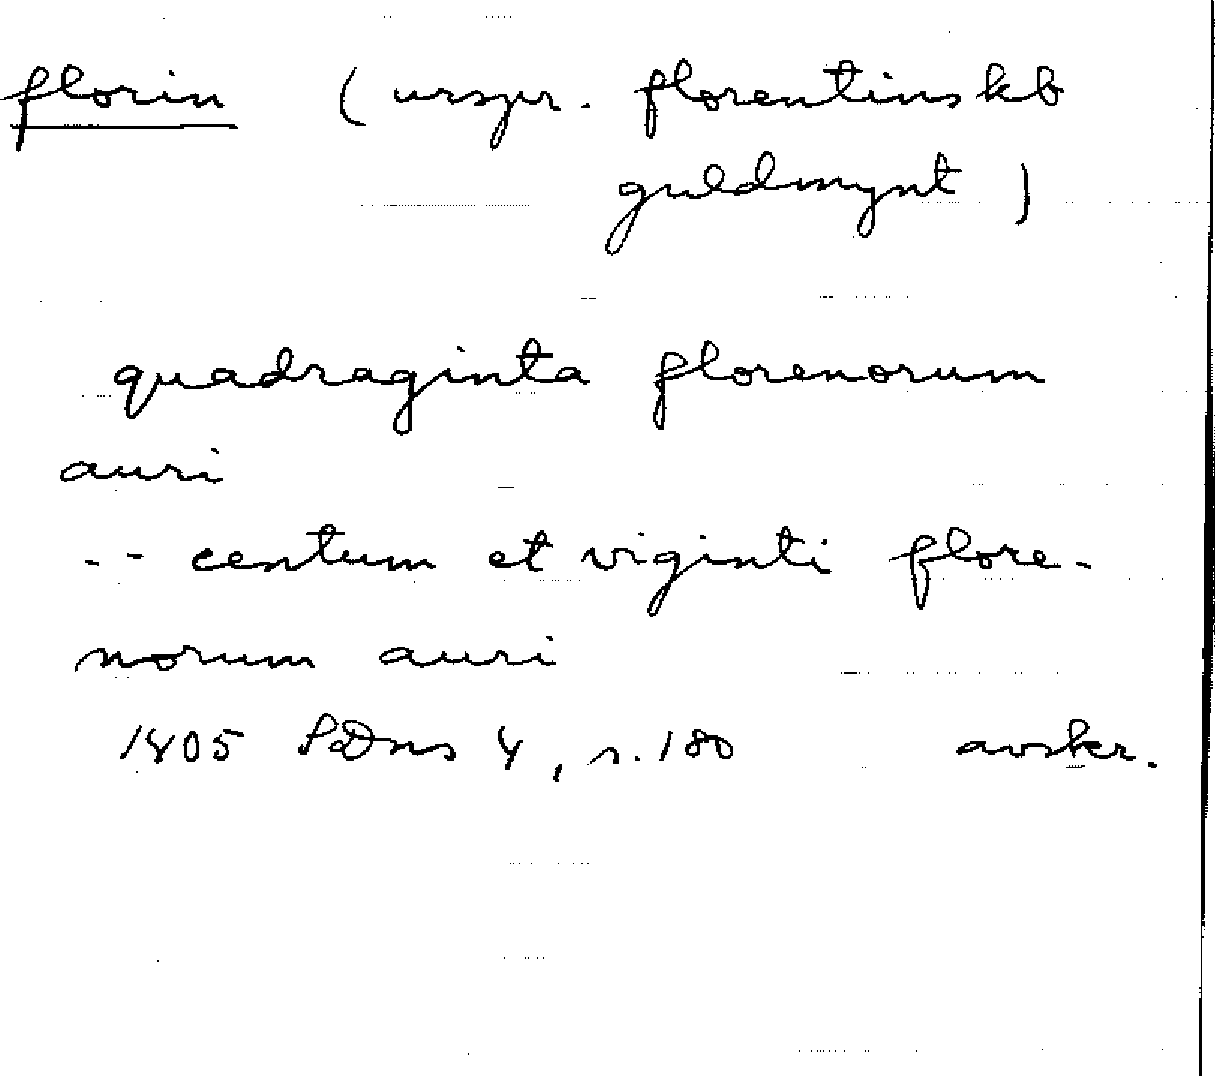 florin ( urspr. florentinskt
guldmynt )
quadraginta florenorum
auri
- - centum et viginti flore-
norum auri
1405 SDns 4, s. 180 avskr.